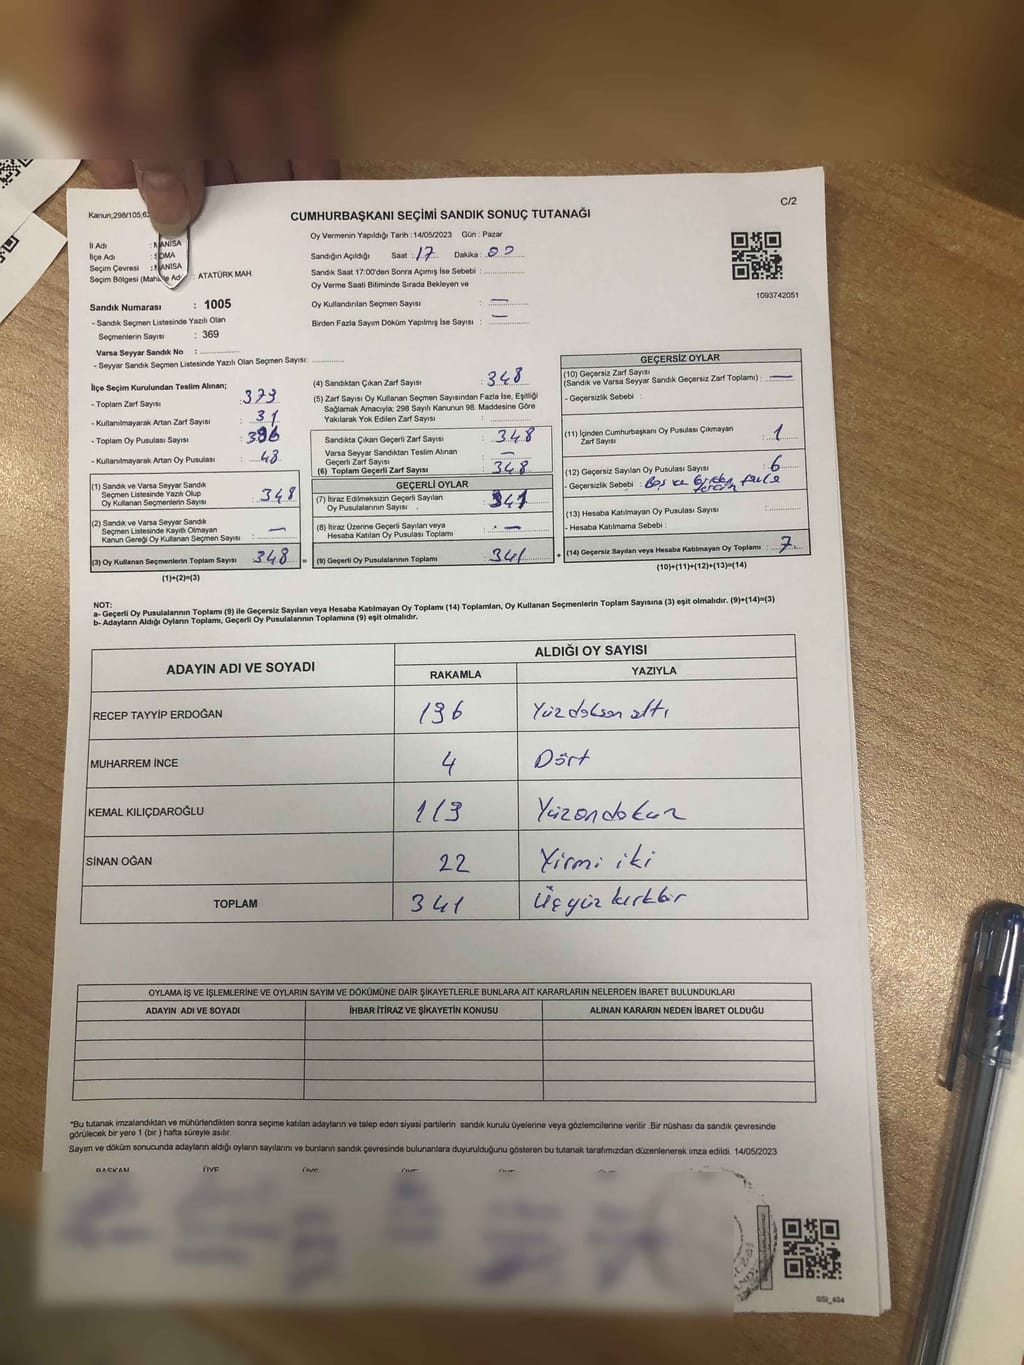 C/2
Kanun,298/105,6
CUMHURBAŞKANI SEÇİMİ SANDIK SONUÇ TUTANAĞI
İl Adı : MANİSA
İlçe Adı : SOMA
Seçim Çevresi : MANİSA
Seçim Bölgesi (Mahalle Adı : ATATÜRK MAH.
Oy Vermenin Yapıldığı Tarih :14/05/2023 Gün : Pazar
Sandığın Açıldığı Saat : 17 Dakika : 00
Sandık Saat 17:00'den Sonra Açımış İse Sebebi :
Oy Verme Saati Bitiminde Sırada Bekleyen ve
Oy Kullandırılan Seçmen Sayısı : —
Birden Fazla Sayım Döküm Yapılmış İse Sayısı : —
1093742051
Sandık Numarası : 1005
- Sandık Seçmen Listesinde Yazılı Olan
Seçmenlerin Sayısı : 369
Varsa Seyyar Sandık No :
- Seyyar Sandık Seçmen Listesinde Yazılı Olan Seçmen Sayısı:
İlçe Seçim Kurulundan Teslim Alınan;
- Toplam Zarf Sayısı : 379
- Kullanılmayarak Artan Zarf Sayısı : 31
- Toplam Oy Pusulası Sayısı : 396
- Kullanılmayarak Artan Oy Pusulası : 48
(1) Sandık ve Varsa Seyyar Sandık
Seçmen Listesinde Yazılı Olup
Oy Kullanan Seçmenlerin Sayısı : 348
(2) Sandık ve Varsa Seyyar Sandık
Seçmen Listesinde Kayıtlı Olmayan
Kanun Gereği Oy Kullanan Seçmen Sayısı : —
(3) Oy Kullanan Seçmenlerin Toplam Sayısı : 348 =
(1)+(2)=(3)
(4) Sandıktan Çıkan Zarf Sayısı : 348
(5) Zarf Sayısı Oy Kullanan Seçmen Sayısından Fazla İse, Eşitliği
Sağlamak Amacıyla; 298 Sayılı Kanunun 98. Maddesine Göre
Yakılarak Yok Edilen Zarf Sayısı :
Sandıkta Çıkan Geçerli Zarf Sayısı : 348
Varsa Seyyar Sandıktan Teslim Alınan
Geçerli Zarf Sayısı : —
(6) Toplam Geçerli Zarf Sayısı : 348
GEÇERLİ OYLAR
(7) İtiraz Edilmeksizin Geçerli Sayılan
Oy Pusulasının Sayısı : 341
(8) İtiraz Üzerine Geçerli Sayılan veya
Hesaba Katılan Oy Pusulası Toplamı : —
(9) Geçerli Oy Pusulalarının Toplamı : 341 +
GEÇERSİZ OYLAR
(10) Geçersiz Zarf Sayısı
(Sandık ve Varsa Seyyar Sandık Geçersiz Zarf Toplamı) : —
- Geçersizlik Sebebi :
(11) İçinden Cumhurbaşkanı Oy Pusulası Çıkmayan
Zarf Sayısı : 1
(12) Geçersiz Sayılan Oy Pusulası Sayısı : 6
- Geçersizlik Sebebi : Boş ve birden fazla
tercih
(13) Hesaba Katılmayan Oy Pusulası Sayısı :
- Hesaba Katılmama Sebebi :
(14) Geçersiz Sayılan veya Hesaba Katılmayan Oy Toplamı : 7
(10)+(11)+(12)+(13)=(14)
NOT:
a- Geçerli Oy Pusulalarının Toplamı (9) ile Geçersiz Sayılan veya Hesaba Katılmayan Oy Toplamı (14) Toplamları, Oy Kullanan Seçmenlerin Toplam Sayısına (3) eşit olmalıdır. (9)+(14)=(3)
b- Adayların Aldığı Oyların Toplamı, Geçerli Oy Pusulalarının Toplamına (9) eşit olmalıdır.
ADAYIN ADI VE SOYADI
ALDIĞI OY SAYISI
RAKAMLA YAZIYLA
RECEP TAYYİP ERDOĞAN 196 Yüzdoksan altı
MUHARREM İNCE 4 Dört
KEMAL KILIÇDAROĞLU 119 Yüzondokuz
SİNAN OĞAN 22 Yirmi iki
TOPLAM 341 Üçyüz kırkbir
OYLAMA İŞ VE İŞLEMLERİNE VE OYLARIN SAYIM VE DÖKÜMÜNE DAİR ŞİKAYETLERLE BUNLARA AİT KARARLARIN NELERDEN İBARET BULUNDUKLARI
ADAYIN ADI VE SOYADI İHBAR İTİRAZ VE ŞİKAYETİN KONUSU ALINAN KARARIN NEDEN İBARET OLDUĞU
*Bu tutanak imzalandıktan ve mühürlendikten sonra seçime katılan adayların ve talep eden siyasi partilerin sandık kurulu üyelerine veya gözlemcilerine verilir .Bir nüshası da sandık çevresinde
görülecek bir yere 1 (bir ) hafta süreyle asılır.
Sayım ve döküm sonucunda adayların aldığı oyların sayılarını ve bunların sandık çevresinde bulunanlara duyurulduğunu gösteren bu tutanak tarafımızdan düzenlenerek imza edildi. 14/05/2023
BAŞKAN ÜYE ÜYE ÜYE ÜYE ÜYE
SSI_404